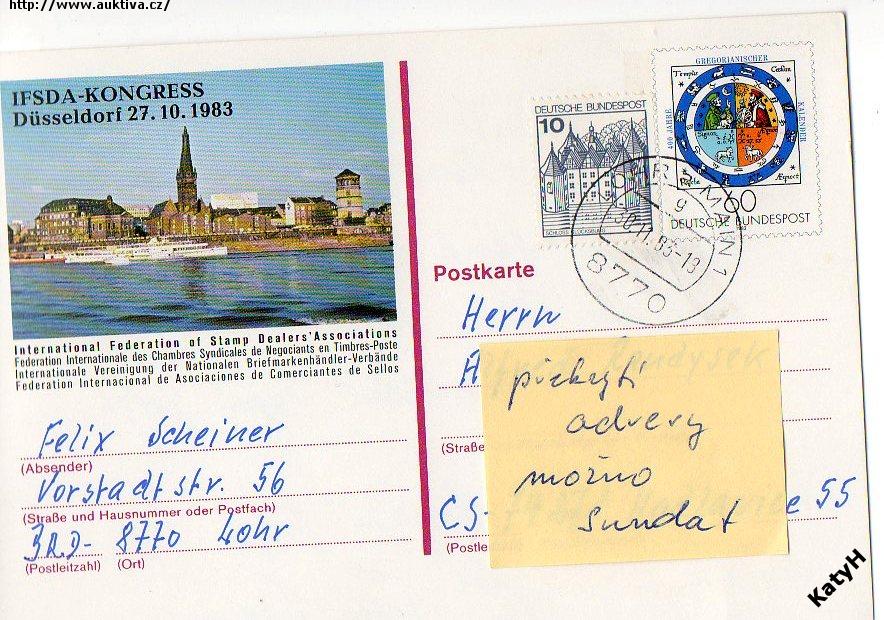 http://www.auktiva.cz/
IFSDA-KONGRESS
Düsseldorf 27.10.1983
International Federation of Stamp Dealers' Associations
Federation Internationale des Chambres Syndicales de Negociants en Timbres-Poste
Internationale Vereinigung der Nationalen Briefmarkenhändler-Verbände
Federation Internacional de Asociaciones de Comerciantes de Sellos
DEUTSCHE BUNDESPOST
10
400 JAHRE
GREGORIANISCHER
KALENDER
60
DEUTSCHE BUNDESPOST
30.11.83-13
g
8770
Postkarte
Herrn
A
překrytí
adresy
možno
sundat
(Straße
CS-
e 55
(Postle
Felix Scheiner
(Absender)
Vorstadtstr. 56
(Straße und Hausnummer oder Postfach)
BRD- 8770 Lohr
(Postleitzahl) (Ort)
KatyH